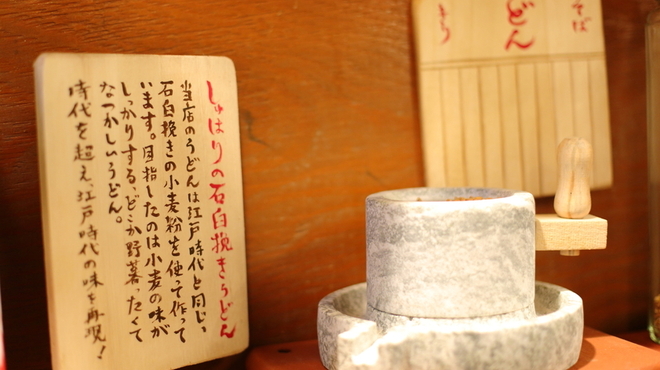 しゅはりの石臼挽きうどん
当店のうどんは江戸時代と同じ、
石臼挽きの小麦粉を使って作って
います。目指したのは小麦の味が
しっかりする、どこか野暮ったくて
なつかしいうどん。
時代を超え、江戸時代の味を再現!
そば
どん
きり